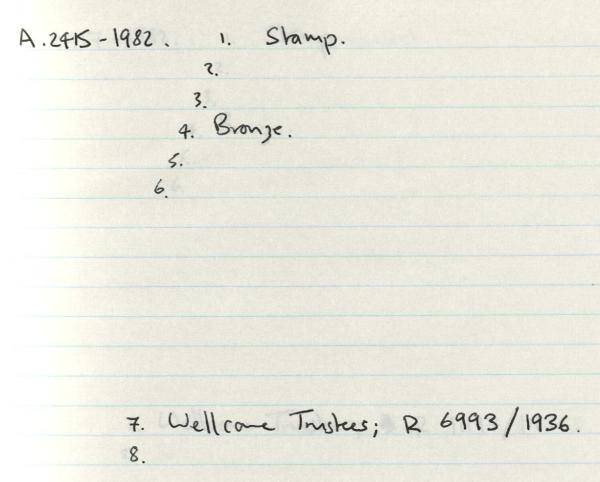 A.2415-1982. 1. Stamp.
2.
3.
4. Bronze.
5.
6.
7. Wellcome Trustees; R 6993/1936.
8.